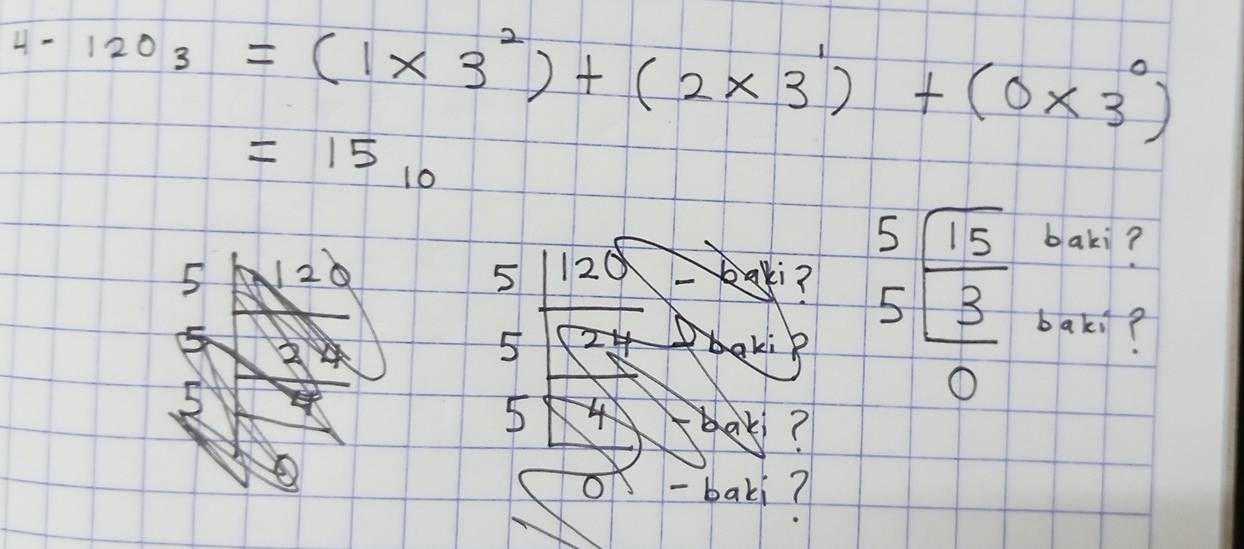 4- 120₃ = (1 × 3²) + (2 × 3¹) + (0 × 3⁰)
= 15₁₀
5 120
5 24
5 4
0
5 120 - baki?
5 24 - baki?
5 4 - baki?
0 - baki?
5 15 baki?
5 3 baki?
0